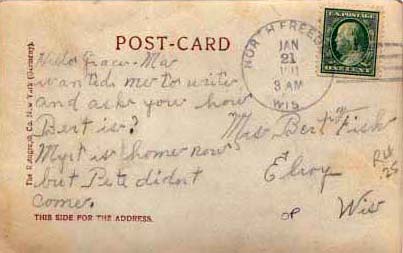 POST-CARD
NORTH FREEDOM
JAN
21
3 AM
WIS
U.S. POSTAGE
ONE CENT
Hello Grace - Ma
wanted me to write
and ask you how
Bert is?
Myrt is home now
but Pete didnt
come.
Mrs Bert Fish
Elroy
Wis
THIS SIDE FOR THE ADDRESS.
The Rotograph Co., New York (Germany).
OP